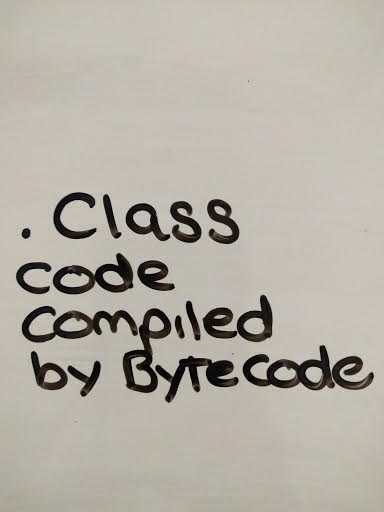 . Class
code
compiled
by Bytecode